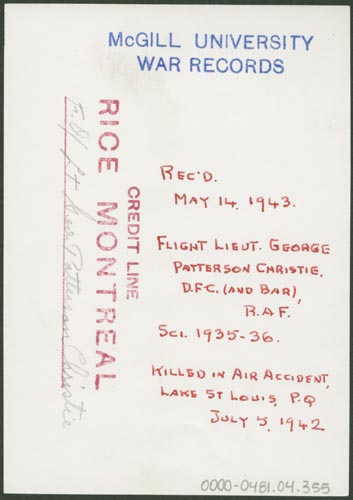 McGILL UNIVERSITY
WAR RECORDS
CREDIT LINE
RICE MONTREAL
F/Lt Geo Patterson Christie
REC'D.
MAY 14, 1943.
FLIGHT LIEUT. GEORGE
PATTERSON CHRISTIE,
D.F.C. (AND BAR),
R.A.F.
SCI. 1935-36.
KILLED IN AIR ACCIDENT,
LAKE ST LOUIS, P.Q
JULY 5, 1942
0000-0481.04.355